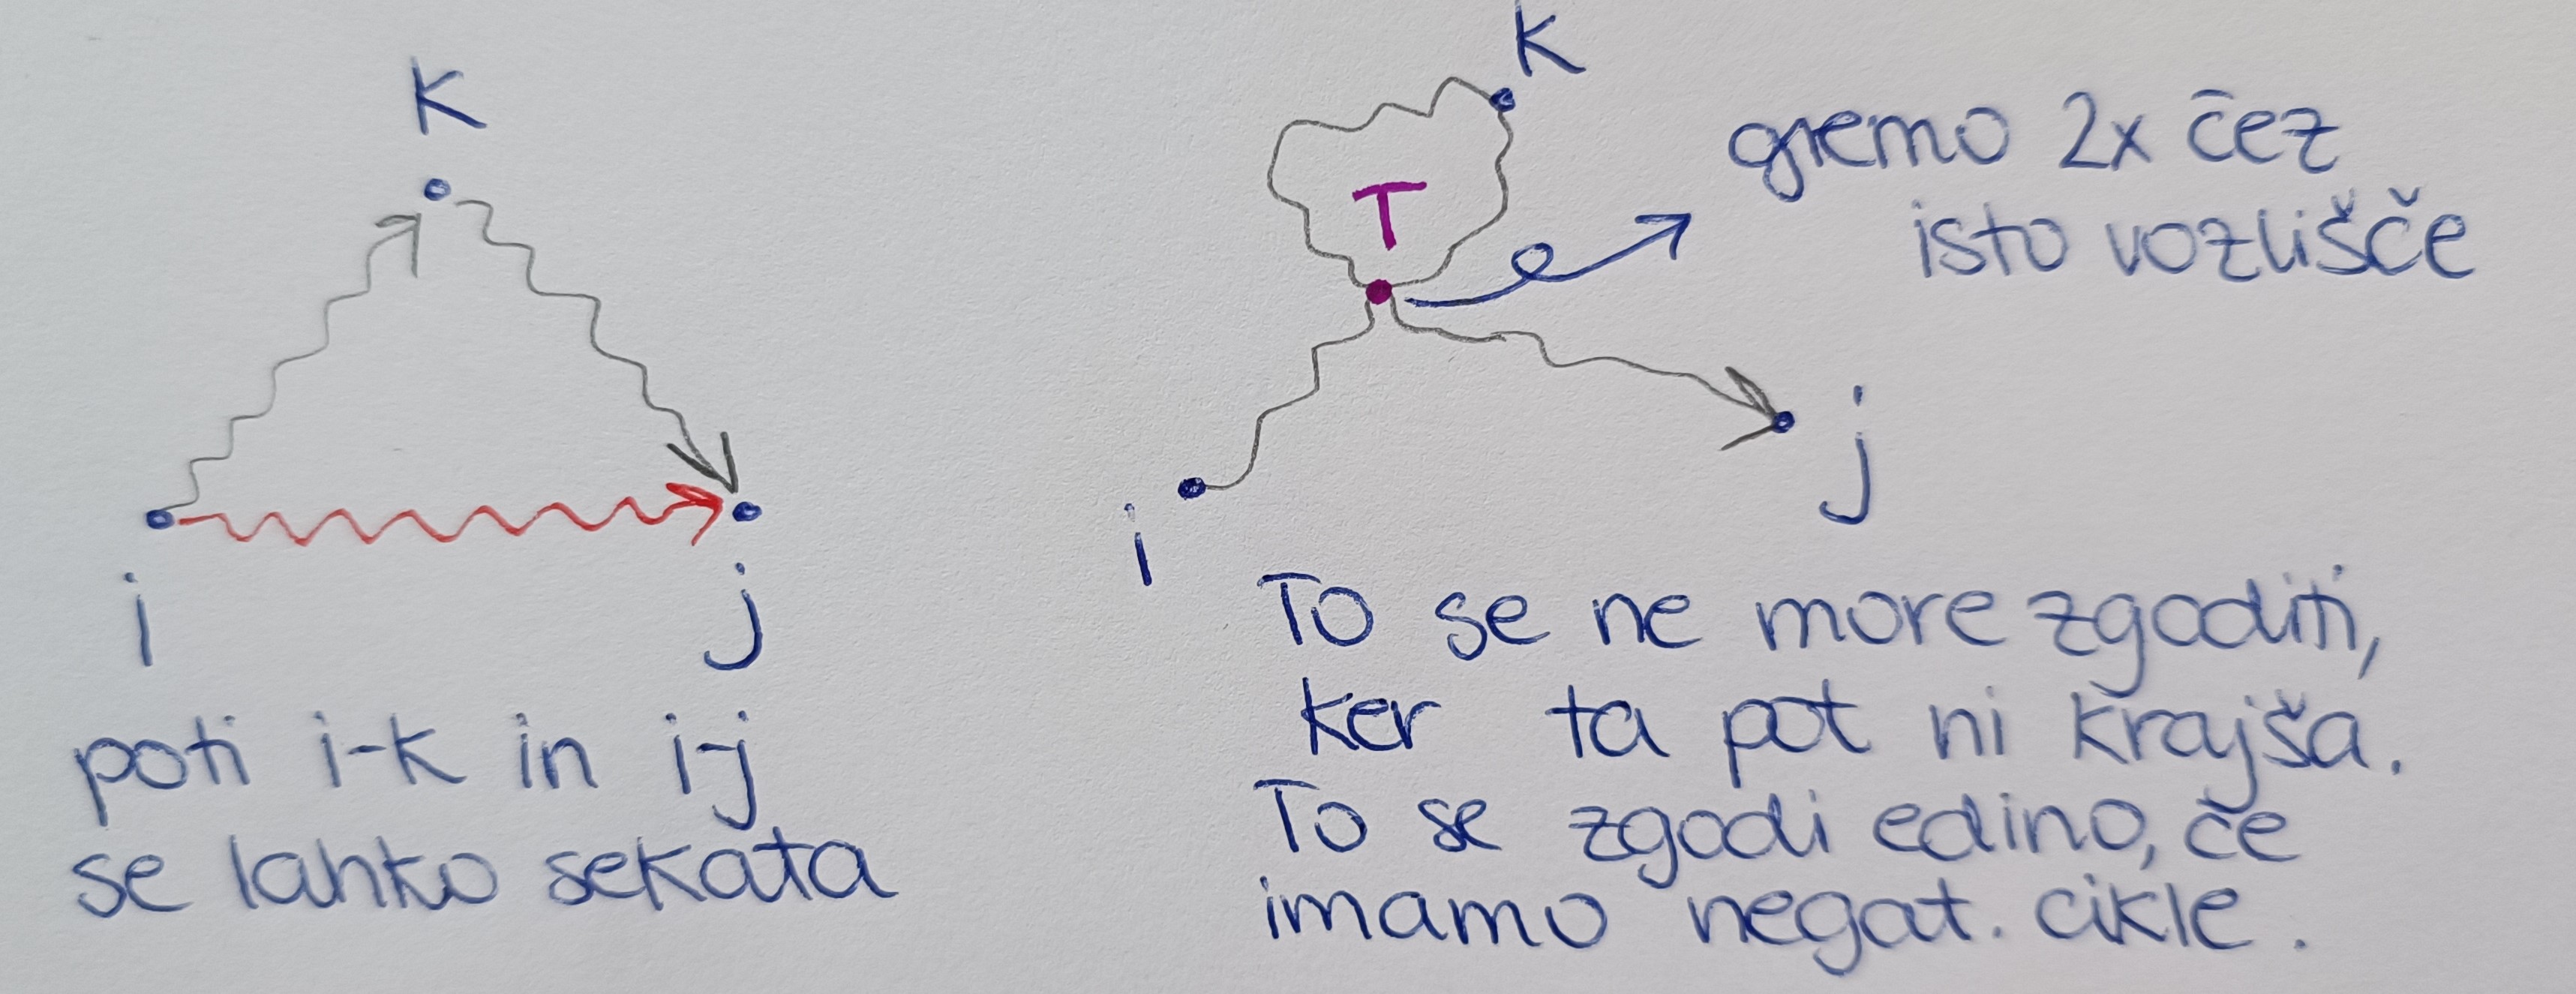 K
i
j
poti i-k in i-j
se lahko sekata
K
T
gremo 2x čez
isto vozlišče
i
j
To se ne more zgoditi,
ker ta pot ni krajša.
To se zgodi edino, če
imamo negat. cikle.